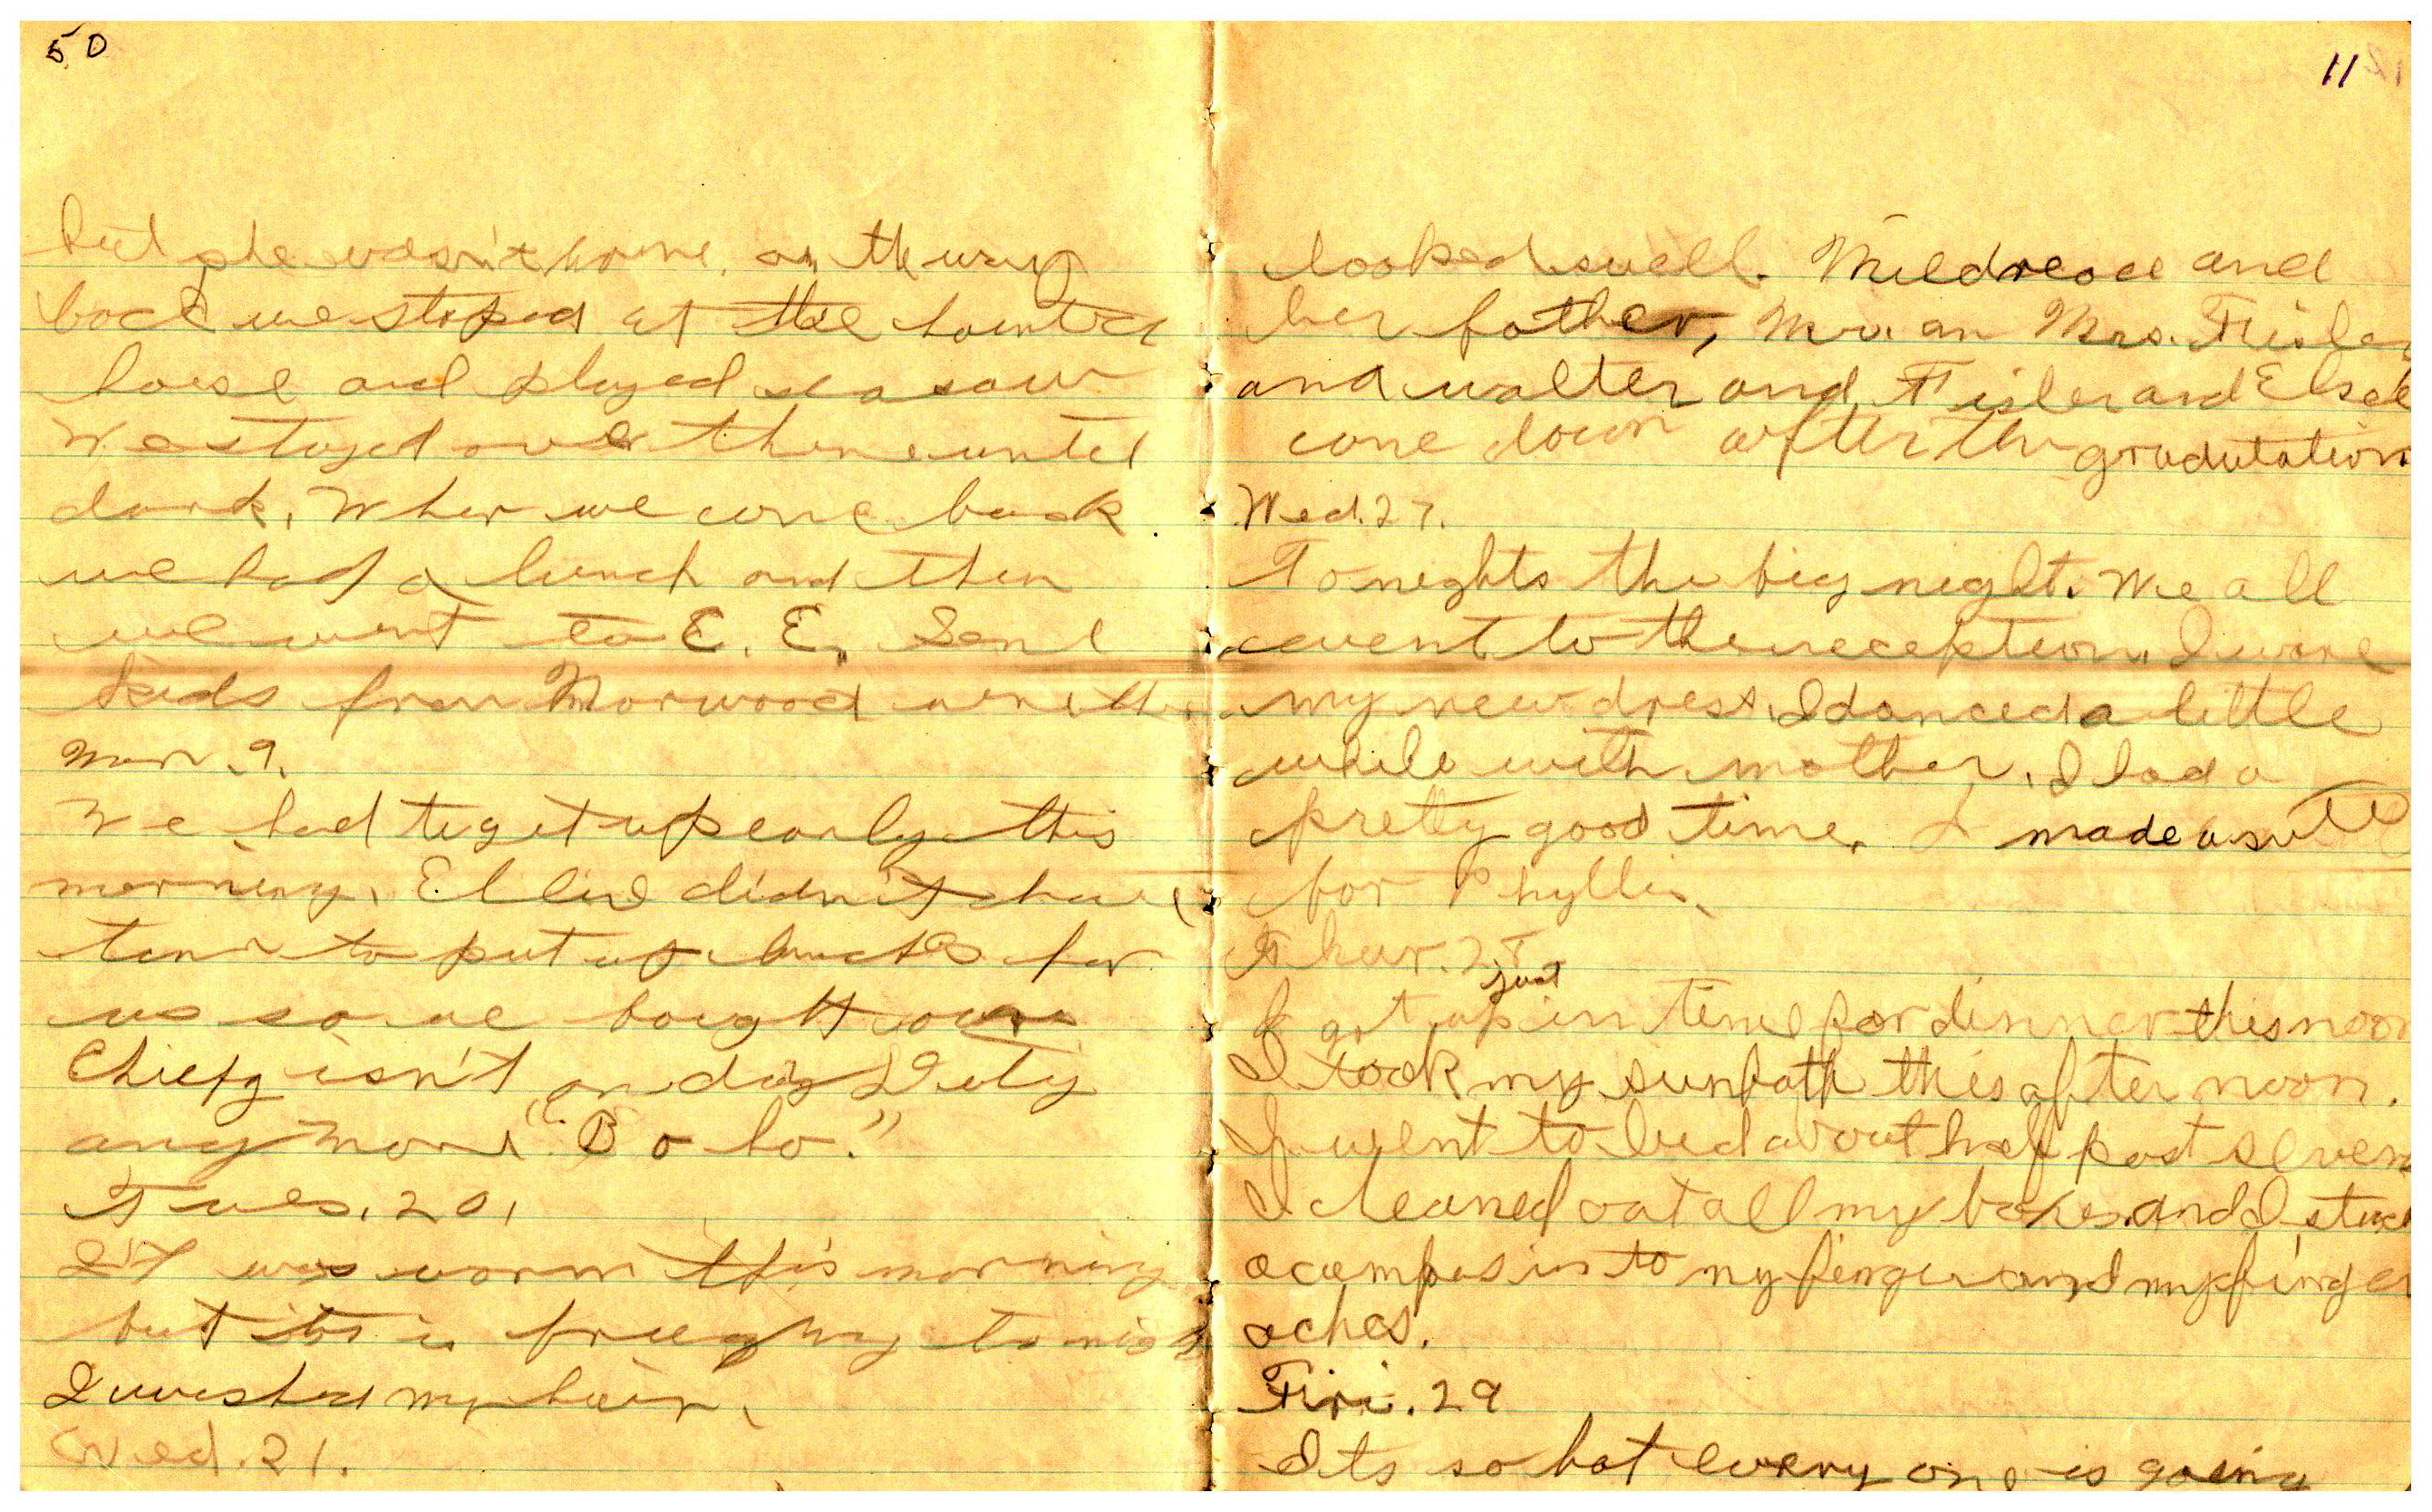 50
but she wasn't home. on the way
back we stoped at the
house and played seasaw
We stayed over there until
dark. When we come back
we had a lunch and then
we went to E. E.
kids from Norwood were
Mon 9.
We had to get up early this
morning. Ellie didn't have
time to put up lunches for
us so we bought ours
Chiefy isn't on day Duty
any more "Bo ho."
Tues. 20.
It was warm this morning
but its is freezing to night
I washed my hair.
Wed. 21.
11
looked swell. Mildread and
her father, Mr. an Mrs. Fisler
and walter and Fisler and Elsie
come down after the gradutation
Wed. 27.
To nights the big night. We all
went to the reception. I wore
my new dress. I danced a little
while with mother. I had a
pretty good time. I made a suit
for Phyllis.
Thur. 28
just
I got up in time for dinner this noon
I took my sunbath this after noon.
I went to bed about half past seven
I cleaned out all my boxes. and I stuck
a compas in to my finger and my finger
aches.
Firi. 29
Its so hot every one is going